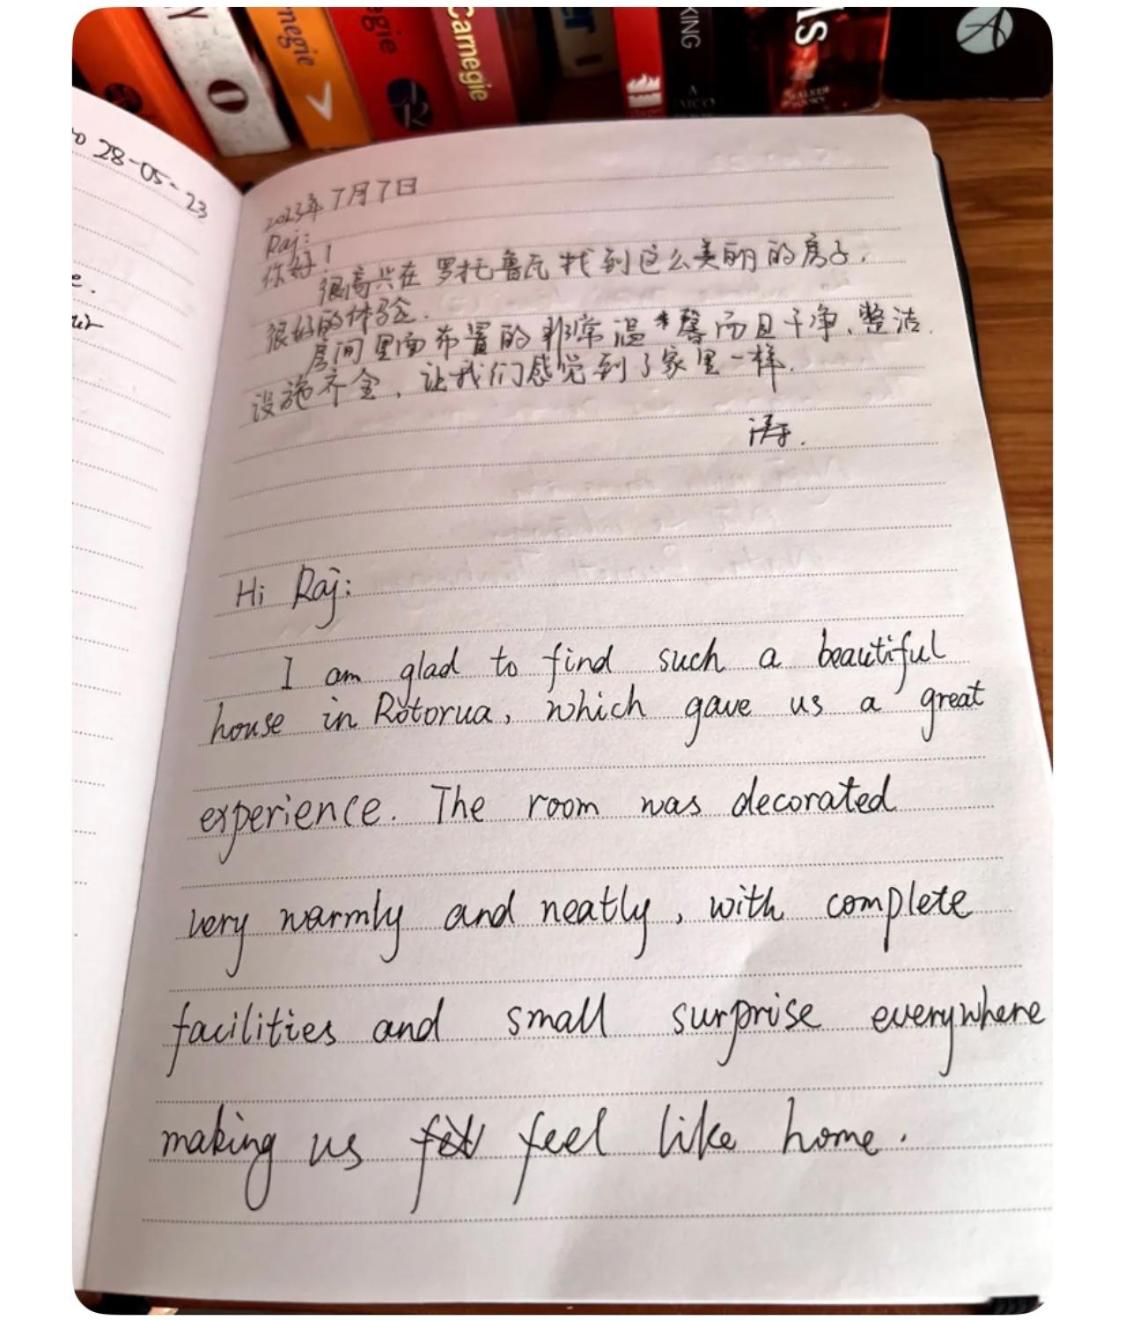 Carnegie
KING
A
28-05-23
2023年7月7日
Raj:
你好!
很高兴在罗托鲁瓦找到这么美丽的房子,
很好的体验.
房间里面布置的非常温馨而且干净、整洁.
设施齐全,让我们感觉到了家里一样.
涛.
Hi Raj:
I am glad to find such a beautiful
house in Rotorua, which gave us a great
experience. The room was decorated
very warmly and neatly, with complete
facilities and small surprise everywhere
making us feel like home.